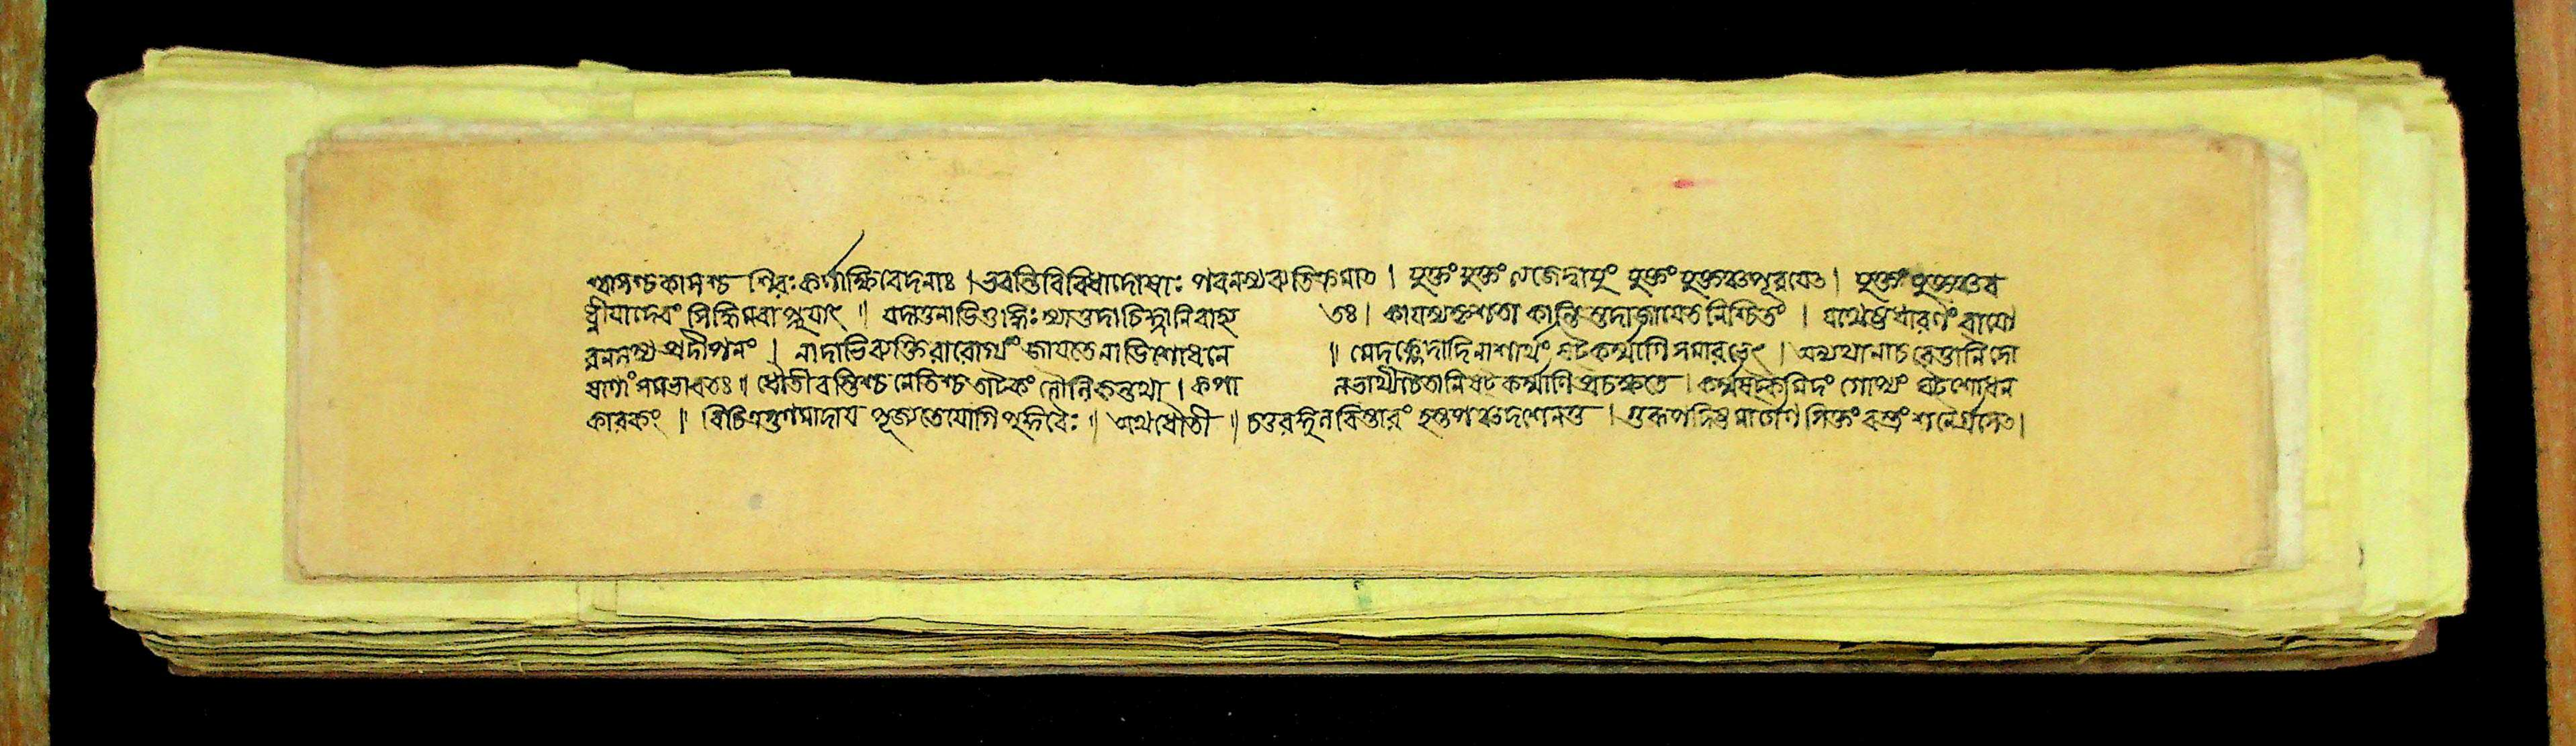 শ্বাসশ্চকাসশ্চ শিরঃকর্ণাক্ষিবেদনাঃ । ভবন্তিবিবিধাদোষাঃ পবনস্যব্যতিক্রমাত । যুক্তং যুক্তং ত্যজেদ্বাযুং যুক্তং যুক্তঞ্চপূরযেত । যুক্তং যুক্তঞ্চব
ধ্নীযাদেবং সিদ্ধিমবাপ্নুযাৎ ॥ যদাতুনাডিশুদ্ধিঃস্যাত্তদাচিহ্নানিবাহ্য তঃ । কাযস্যকৃশতা কান্তিস্তদাজাযেতনিশ্চিতং । যথেষ্টধারণং বাযো
রনলস্য প্রদীপনং । নাদাভিব্যক্তিরারোগ্যং জাযতেনাডিশোধনে ॥ মেদশ্লেষ্মাদিনাশার্থং ষটকর্ম্মাণিসমারভেৎ । অন্যথানাচরেত্তানিদো
ষাণাং সমভাবতঃ ॥ ধৌতীবস্তিশ্চনেতিশ্চত্রাটকং লৌনিকন্তথা । কপা লভাথীচৈতানিষট কর্ম্মাণিপ্রচক্ষতে । কর্ম্মষট্কমিদং গোপ্যং ঘটশোধন
কারকং ॥ বিচিত্রগুণমাদায পূজ্যতেযোগিপুঙ্গবৈঃ ॥ অথধৌতী ॥ চতুরঙ্গুলবিস্তারং হস্তপঞ্চদশেনতু । গুরূপদিষ্টমার্গেণসিক্তং বস্ত্রং শনৈর্গ্রসেত ।